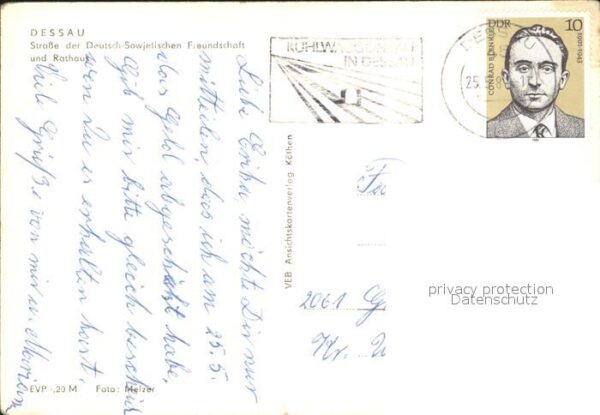 DESSAU
Straße der Deutsch-Sowjetischen Freundschaft
und Rathaus
KÜHLWAGGONBAU
IN DESSAU
DDR
10
CONRAD BLENKLE
1901-1943
25.5.8
Liebe Erika, möchte Dir nur
mitteilen, das ich am 25.5.
das Geld abgeschickt habe,
Gib mir bitte gleich bescheid
wen Du es erhalten hast.
Viele Grüße von mir u.
VEB Ansichtskartenverlag Köthen
2061
Kr.
privacy protection
Datenschutz
EVP -,20 M Foto: Melzer